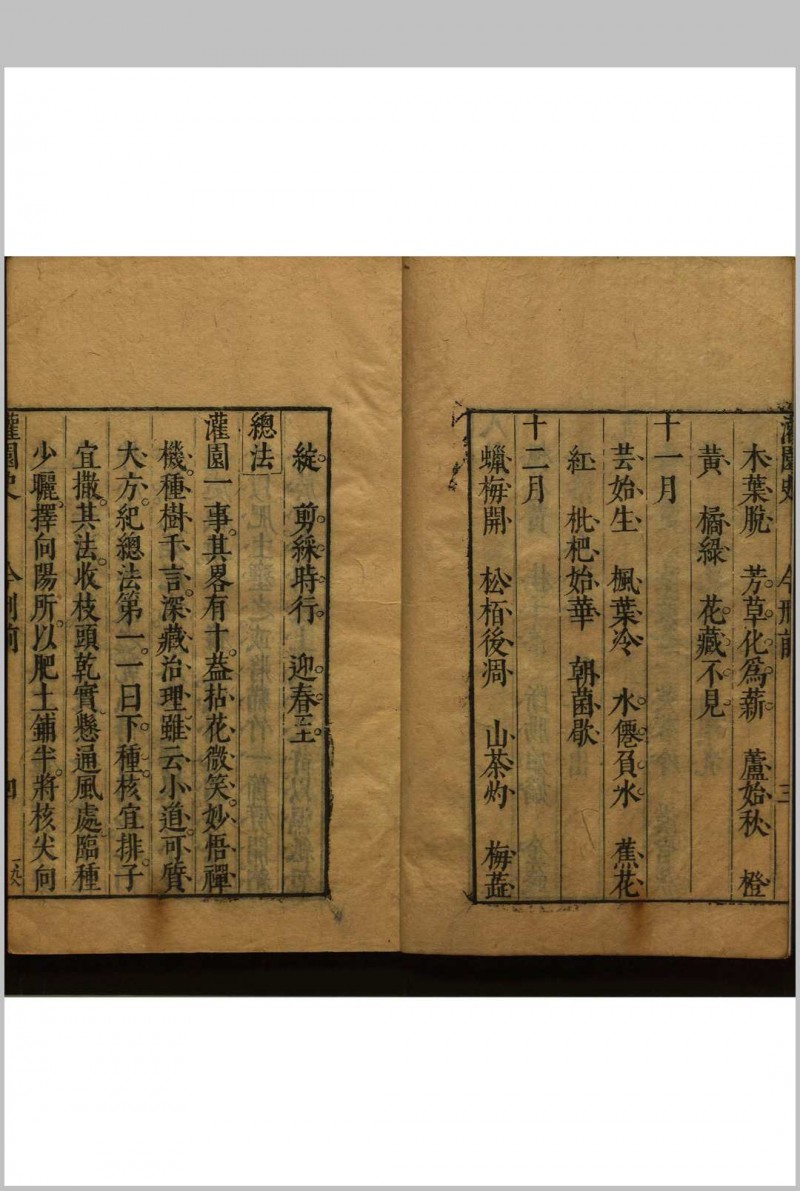 灌園史 今刑前 三
木葉脫 芳草化爲薪 蘆始秋 橙
黃 橘綠 花藏不見
十一月
芸始生 楓葉冷 水僊負水 蕉花
紅 枇杷始華 朝菌歇
十二月
蠟梅開 松栢後凋 山茶灼 梅蕋
綻 剪綵時行 迎春至
總法
灌園一事其畧有十葢拈花微笑妙悟禪
機種樹千言深藏治理雖云小道可質
大方紀總法第一一曰下種核宜排子
宜撒其法收枝頭乾實懸通風處臨種
少曬擇向陽所以肥土鋪半將核尖向
灌園史 今刑前 四